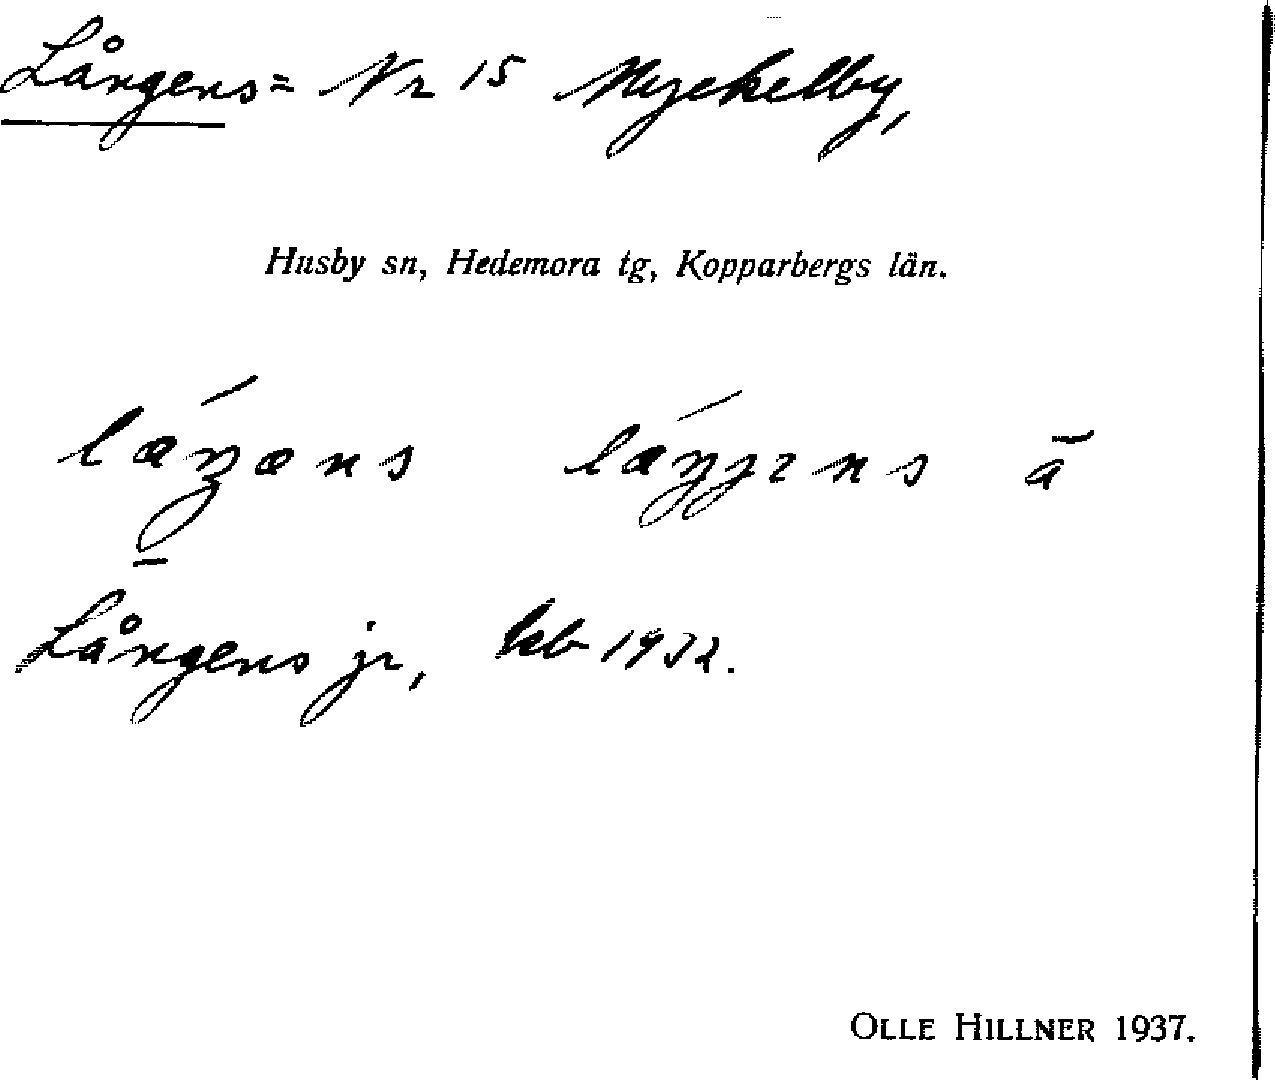 Långens = Nr 15 Myckelby,
Husby sn, Hedemora tg, Kopparbergs län.
Långens jr, kb 1932.
OLLE HILLNER 1937.